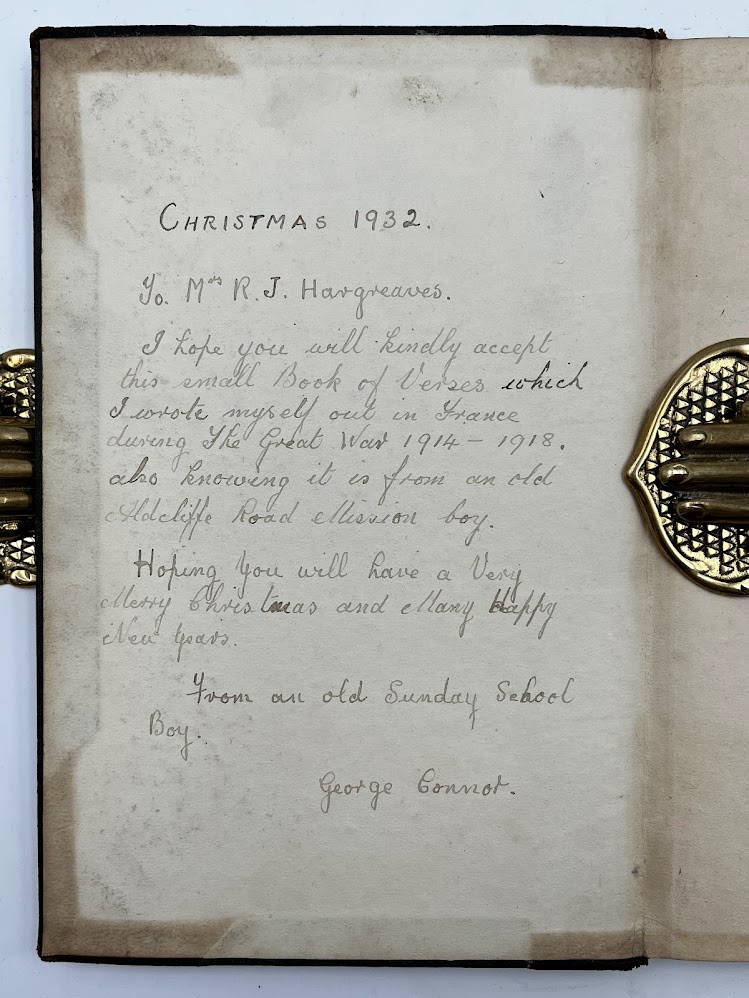 CHRISTMAS 1932.
To. Mrs R. J. Hargreaves.
I hope you will kindly accept
this small Book of Verses which
I wrote myself out in France
during The Great War 1914 - 1918.
also knowing it is from an old
Aldcliffe Road Mission boy.
Hoping you will have a Very
Merry Christmas and Many Happy
New Years.
From an old Sunday School
Boy.
George Connor.